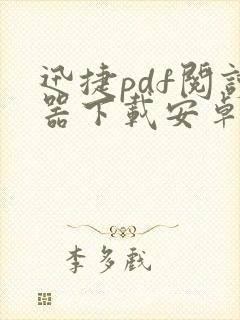 迅捷pdf閱讀
器下載安卓
李多戲